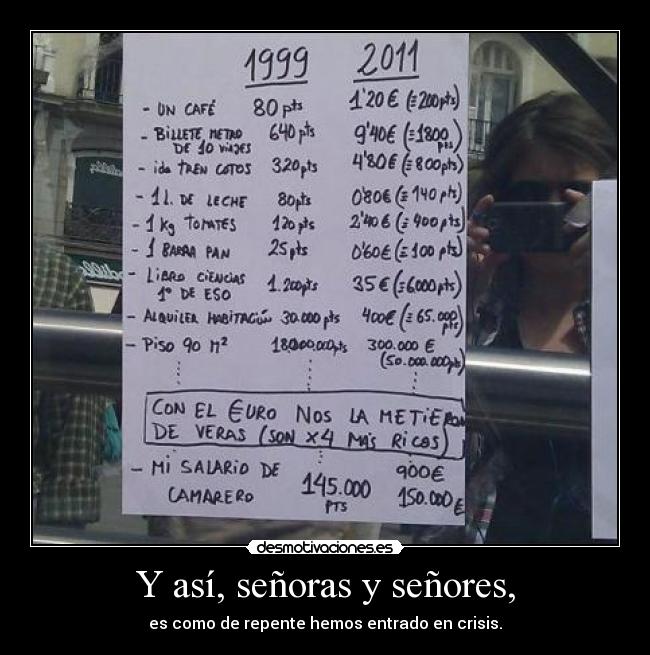 1999 2011
- UN CAFÉ 80 pts 1'20 € (≡ 200 pts)
- BILLETE METRO DE 10 VIAJES 640 pts 9'40€ (≡ 1800 pts)
- ida TREN COTOS 320 pts 4'80€ (≡ 800 pts)
- 1 l. DE LECHE 80 pts 0'80€ (≡ 140 pts)
- 1 Kg TOMATES 120 pts 2'40 € (≡ 400 pts)
- 1 BARRA PAN 25 pts 0'60€ (≡ 100 pts)
- LIBRO CIENCIAS 1º DE ESO 1.200 pts 35 € (≡ 6000 pts)
- ALQUILER HABITACIÓN 30.000 pts 400€ (≡ 65.000 pts)
- PISO 90 M² 300.000 €
(50.000.000 pts)
CON EL EURO NOS LA METIERON
DE VERAS (SON X4 MÁS RICOS)
- MI SALARIO DE CAMARERO 145.000 PTS 900€
150.000 €
desmotivaciones.es
Y así, señoras y señores,
es como de repente hemos entrado en crisis.